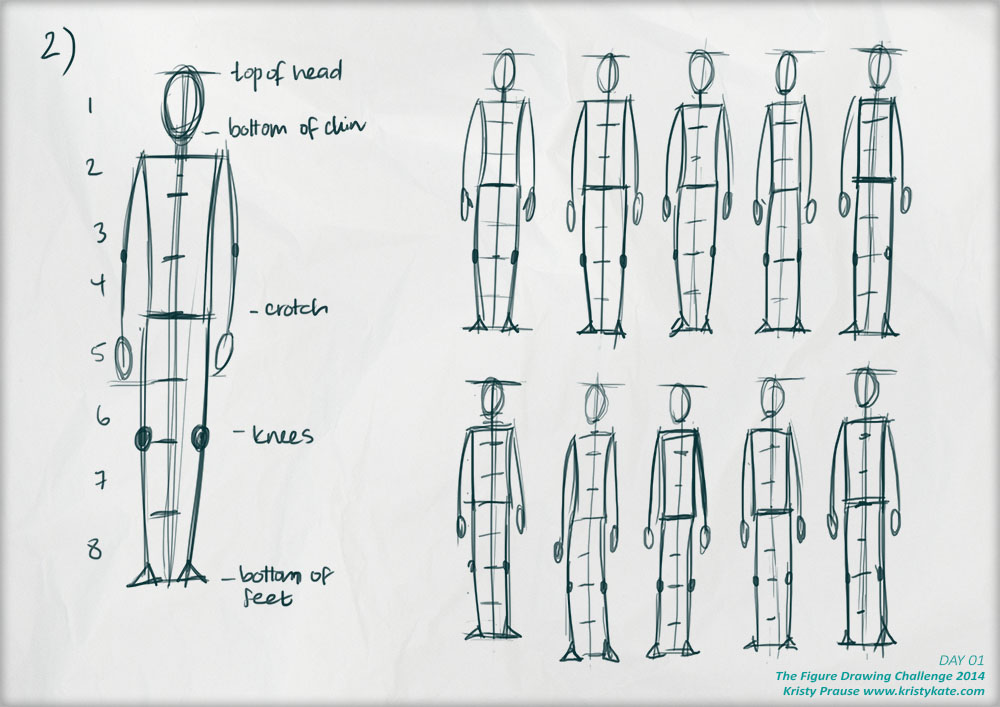 2)
top of head
1
bottom of chin
2
3
4
- crotch
5
6
- knees
7
8
- bottom of
feet
DAY 01
The Figure Drawing Challenge 2014
Kristy Prause www.kristykate.com